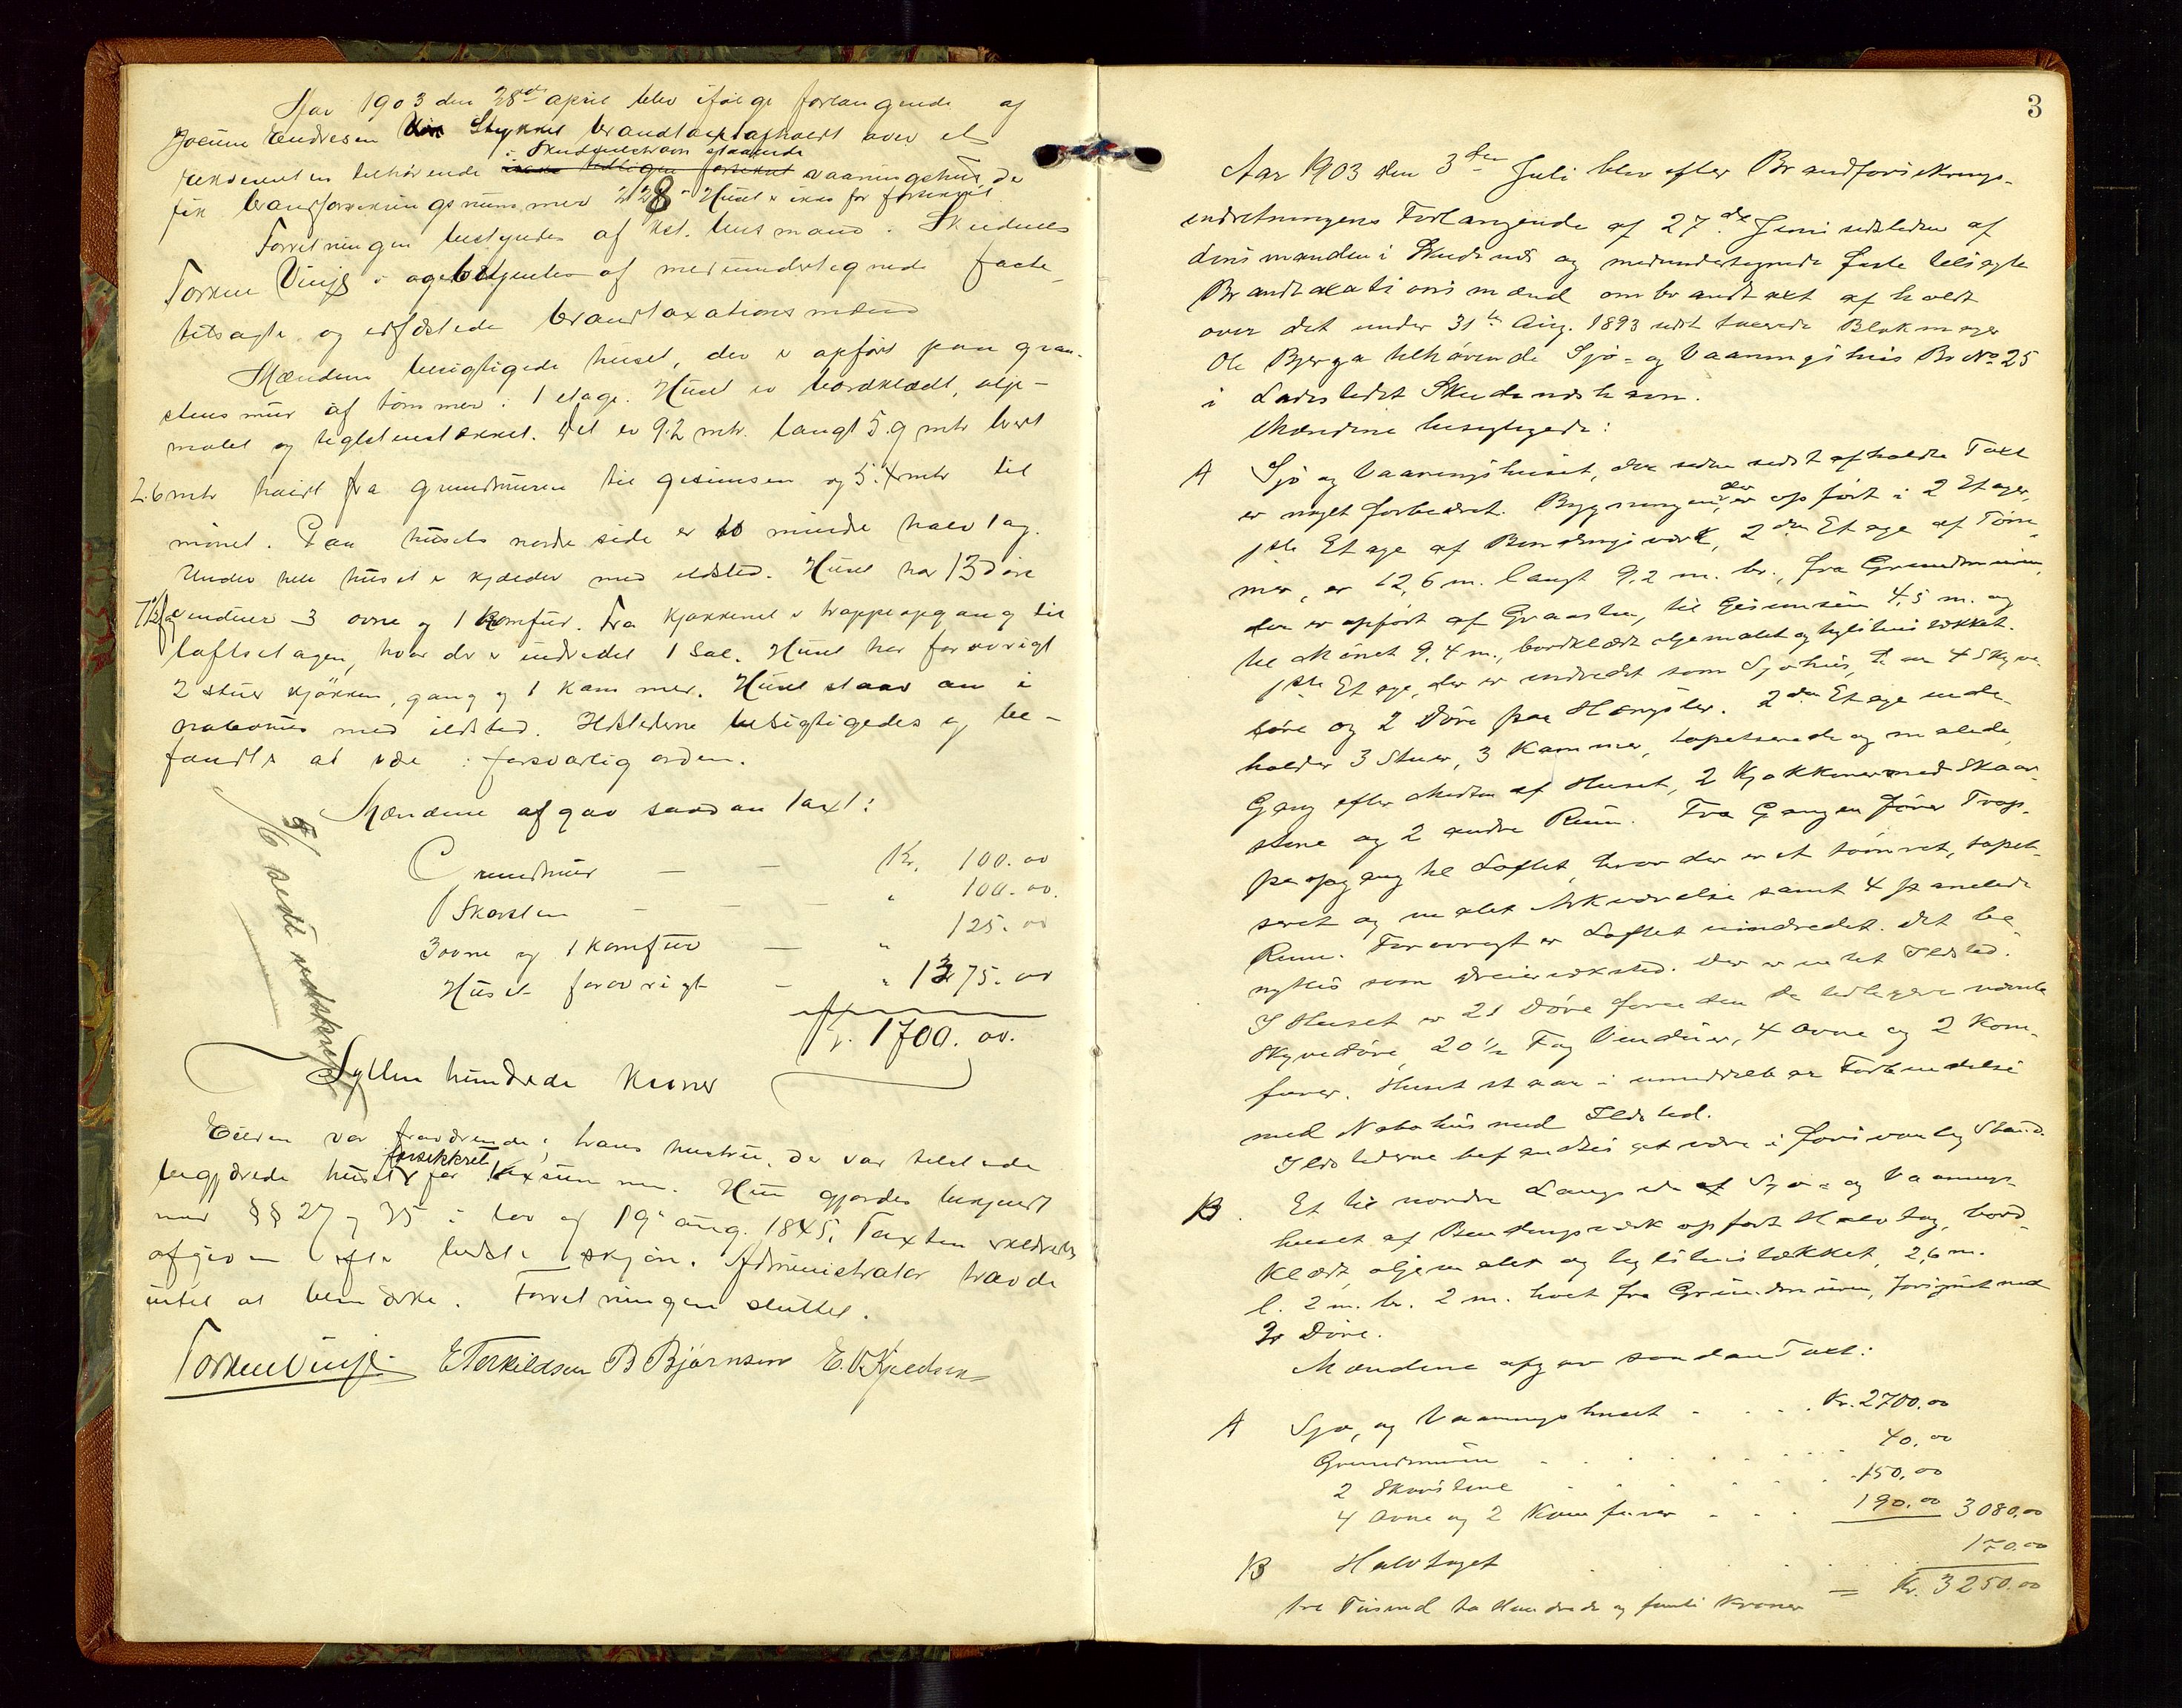 Aar 1903 den 28de april blev ifølge forlangende af
Joenne Endresen Stykket brandtaxt afholdt over et
i Skudeneshavn staaende
rekvirenten tilhørende vaaningshus, der
fik brandforsikringsnummer 228. Huset er ikke før forsikret.
Forretningen bestyredes af kst. lensmand i Skudenes
Torkel Vinje og betjentes af medundertegnede faste,
tilsagte og edfæstede brandtaxationsmænd
Mændene besigtigede huset, der er opført paa graa-
stensmur af tømmer i 1 etage. Huset er bordklædt, olje-
malet og teglstenstækket. Det er 9.2 mtr. langt 5.9 mtr bredt
2.6 mtr høidt fra grundmuren til gesimsen og 5.4 mtr til
mønet. Paa husets nordre side er to mindre halvtag.
Under hele huset er kjælder med ildsted. Huset har 13 døre
7½ fag vinduer 3 ovne og 1 komfur. Fra kjøkkenet er trappeopgang til
loftsetagen, hvor der er indredet 1 Sal. Huset har forøvrigt
2 stuer kjøkken, gang og 1 kammer. Huset staar an i
nabohus med ildsted. Ildstederne besigtigedes og be-
fandtes at være i forsvarlig orden.
Mændene afgav saadan taxt:
Grundmur — — Kr. 100.00
Skorsten — — — " 100.00.
3 ovne og 1 komfur — " 125.00
Huset forøvrigt — " 1375.00
Kr. 1700.00.
Sytten hundrede Kroner
Eieren var fraværende; hans hustru, der var tilstede
forsikkret
begjærede huset for taxsummen. Hun gjordes bekjendt
med §§ 27 og 35 i lov af 19 aug. 1845. Taxten erklæredes
afgiven efter bedste skjøn. Administrator havde
intet at bemærke. Forretningen sluttet.
Torkel Vinje E Terkildsen B Bjørnsen E. O. Kjeldsen
3
Aar 1903 den 3die Juli blev efter Brandforsikrings-
indretningens Forlangende af 27de Juni sidstleden af
lensmanden i Skudenes og medundertegnede faste tilsagte
Brandtaxationsmænd ombrandtaxt afholdt
over det under 31te Aug. 1893 sidst taxerede Blokmager
Ole Bjerga tilhørende Sjø- og Vaaningshus Br No 25
i Ladestedet Skudeneshavn.
Mændene besigtigede:
A Sjø og Vaaningshuset, der siden sidst afholdte Taxt
er noget forbedret. Bygningen, der er opført i 2 Etager,
1ste Etage af Bindingsværk, 2den Etage af Tøm-
mer, er 12,6 m. langt 9,2 m. br., fra Grundmuren,
der er opført af Graasten, til Gesimsen 4,5 m. og
til Mønet 9,4 m., bordklædt oljemalet og teglstenstækket.
1ste Etage, der er indredet som Sjøhus, har 4 Skyve-
døre og 2 Døre paa Hængsler. 2den Etage inde-
holder 3 Stuer, 3 Kammer, tapetserede og malede,
Gang efter Midten af Huset, 2 Kjøkkener med Skaar-
stene og 2 andre Rum. Fra Gangen fører Trap-
peopgang til Loftet, hvor der er et tømret, tapet-
seret og malet Arkværelse samt 4 panelede
Rum. Forøvrigt er Loftet uindredet. Det be-
nyttes som Dreierværksted. Der er intet Ildsted.
I Huset er 21 Døre foruden de tidligere nævnte
Skyvedøre, 20½ Fag Vinduer, 4 Ovne og 2 Kom-
furer. Huset staar i umiddelbar Forbindelse
med Nabohus med Ildsted.
Ildstederne befandtes at være i forsvarlig Stand.
B. Et til nordre Langside af Sjø- og Vaanings-
huset af Bindingsværk opført Halvtag, bord-
klædt, oljemalet og teglstenstækket, 2,6 m.
l. 2 m. br. 2 m. høit fra Grundmuren, forsynet med
2 Døre.
Mændene afgav saadan Taxt:
A Sjø, og Vaaningshuset . . . . Kr. 2700.00
Grundmuren . . . . . . 40.00
2 Skorstene . . . . . 150.00
4 Ovne og 2 Komfurer . . . 190.00 3080.00
B Halvtaget . . . . . . 170.00
tre Tusind to Hundrede og femti Kroner = Kr. 3250.00